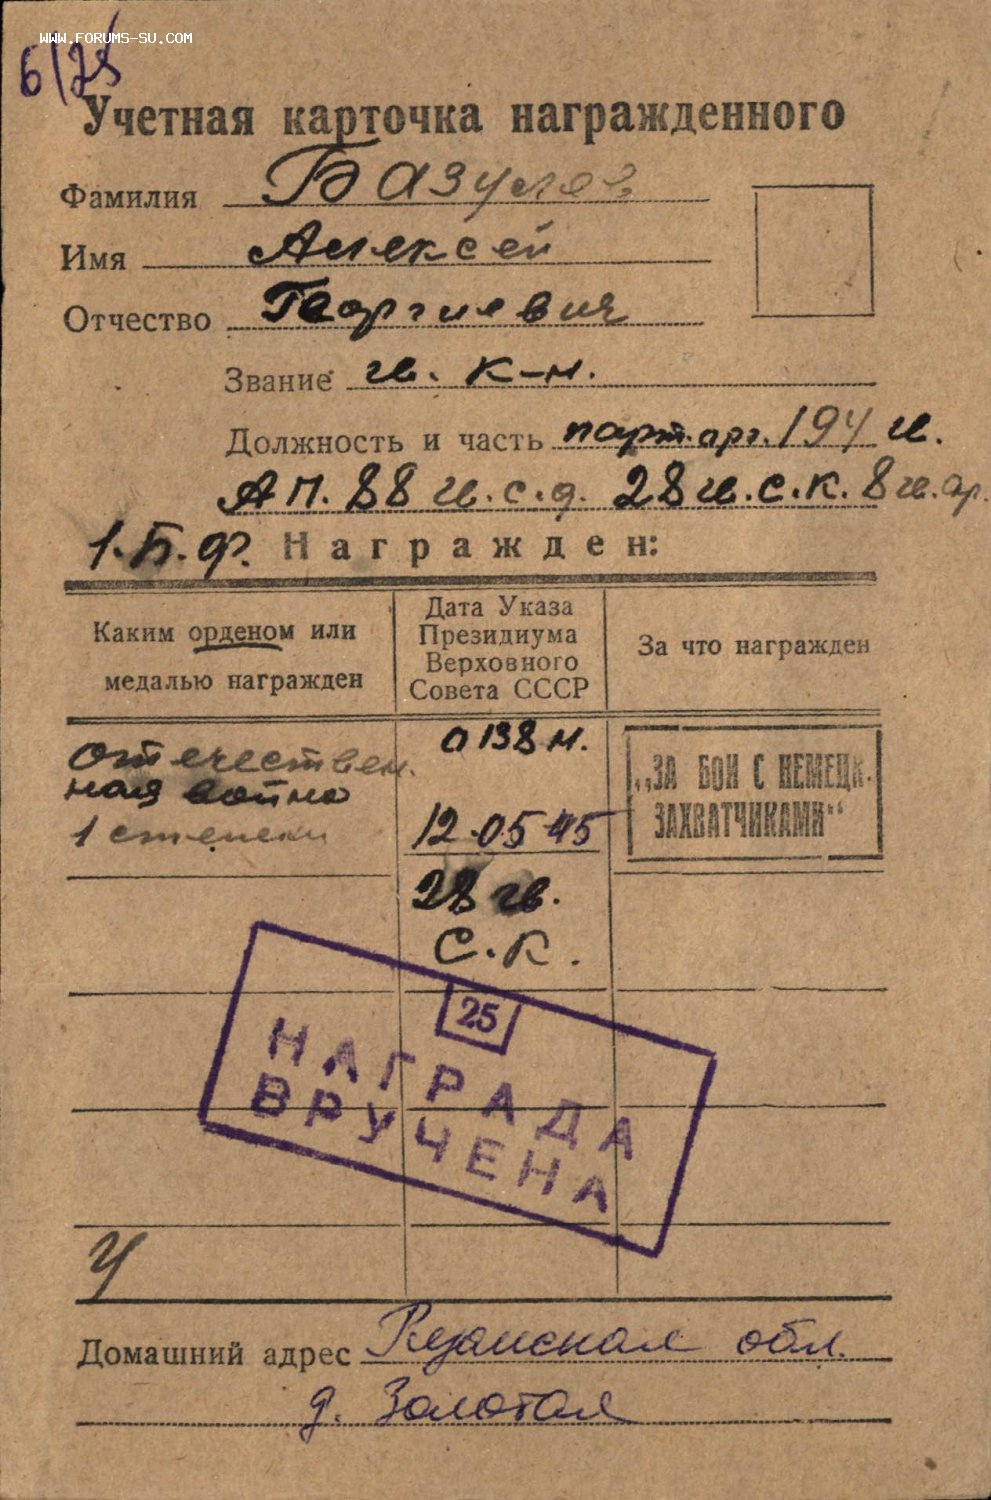 WWW.FORUMS-SU.COM
6/25
Учетная карточка награжденного
Фамилия Базулев
Имя Алексей
Отчество Георгиевич
Звание гв. к-н.
Должность и часть парт.орг. 194 гв.
АП. 88 гв. с.д. 28 гв. с.к. 8 гв. ар.
1.Б.Ф. Награжден:
Каким орденом или медалью награжден
Дата Указа Президиума Верховного Совета СССР
За что награжден
отечествен.
ная война
1 степени
0138 н.
12.05.45
28 гв.
С.К.
„ЗА БОИ С НЕМЕЦК.
ЗАХВАТЧИКАМИ“
25
НАГРАДА
ВРУЧЕНА
У
Домашний адрес Рязанская обл.
д. Золотая